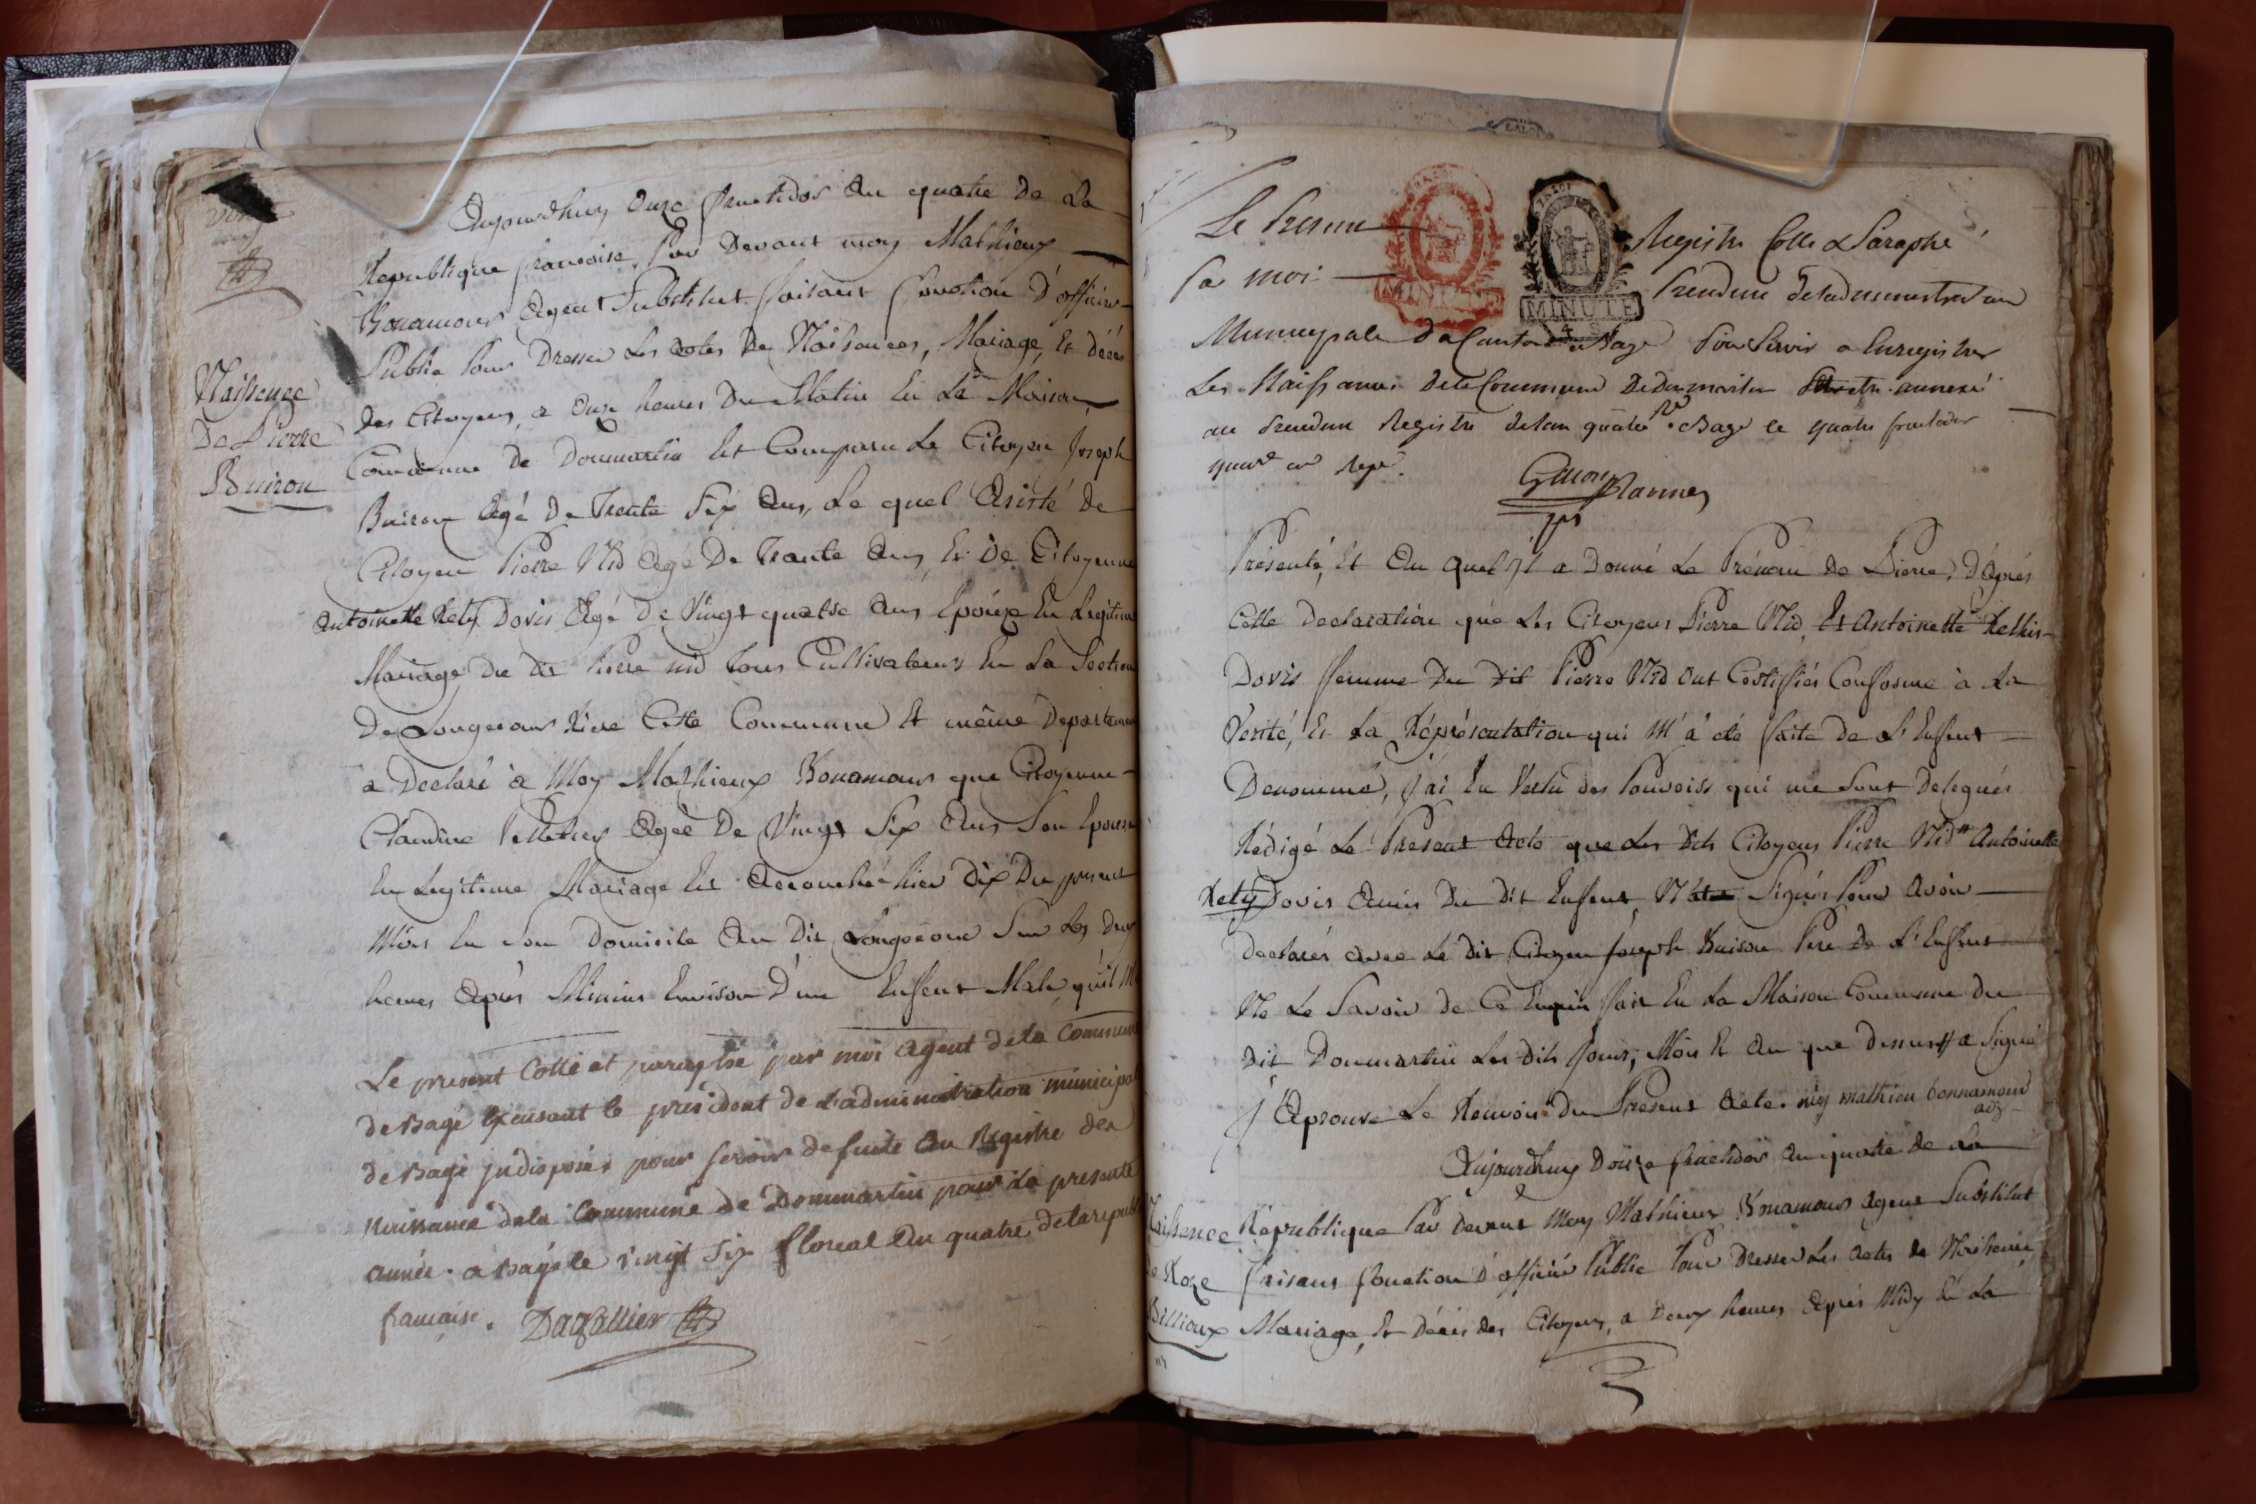 Naissence
De Pierre
Buiron
Aujourdhuy Onze fructidor An quatre De La
Republique francoise, Par Devant moy Mathieux
Bonamour Agent Substitut faisant fonction D'officier
Public Pour Dresser Les actes De Naissences, Mariage, Et décès
Des Citoyens, a Onze heures Du Matin En La Maison
Commune De Dommartin Est Comparu Le Citoyen Joseph
Buiron Agé De Trente Six Ans, Le quel Assisté De
Citoyen Pierre Nid Agé De Trante Ans, Et De Citoyenne
Antoinette Rety Dovis Agé De Vingt quatre Ans Epouze En Legitime
Mariage Du dit Pierre nid tous Cultivateurs En La Section
De Longecour Riere Cette Commune Et même Departement
a Declaré à Moy Mathieux Bonamour que Citoyenne
Claudine Pelletier Agée De Vingt Six Ans Son Epouse
En Legitime Mariage Est Accouchée hier Dix Du present
Mois En Son Domicile Au Dit Longecour Sur Les Deux
heures Après Minuit Environ D'un Enfent Male, qu'il M'a
Le present Cotté et paraphé par moi Agent de la Commune
de Bagé Excusant le president de L'administration municipale
de Bagé jndisposés pour servir de suite Au Registre des
Naissance dela Commune de Dommartin pour La presente
année. a Bagé le vingt six floreal An quatre dela republ
francaise. Dagallier
Le Presen
Registre Cotte & Paraphé
Par moi
President deladministration
MINUTE
Municipale Du Canton De Bage Pour Servir a Enregistrer
Les Naissances dela Commune De Dommartin Et etre annexé
au Precedent Registre delan quatre. Bage Le quatre fructidor
Présenté, Et Au quel Jl a Donné Le Prénom De Pierre, D'Après
Cette Declaration que Les Citoyens Pierre Nid, Et Antoinette Rethis
Dovis femme Du Dit Pierre Nid Ont Certiffiés Conforme à La
Verité, Et La Représentation qui M'a été faite De L'Enfent
Denommé, J'ai En Vertu Des Pouvoirs qui me Sont Delegués
Rédigé Le Present Acte que Les Dits Citoyens Pierre Nid Et Antoinette
Rety Dovis Amis Du Dit Enfent, N'ont Signés Pour Avoir
Declarés Avec Le Dit Citoyen Joseph Buiron Pere De L'Enfent
Ne Le Savoir De Ce Enquis fait En La Maison Commune Du
Dit Dommartin Les Dits Jour, Mois Et An que Dessus & a Signé
J'Aprouve Le Renvoi Du Present Acte. moy mathieu bonnamour
Aujourdhuy Douze fructidor An quatre De La
Naissence
De Roze
Billioux
République Par Devant Moy Mathieux Bonamour Agent Substitut
faisant fonction D'officié Public Pour Dresser Les Actes De Naissence,
Mariage, Et Décès Des Citoyens, a Deux heures Après Midy En La